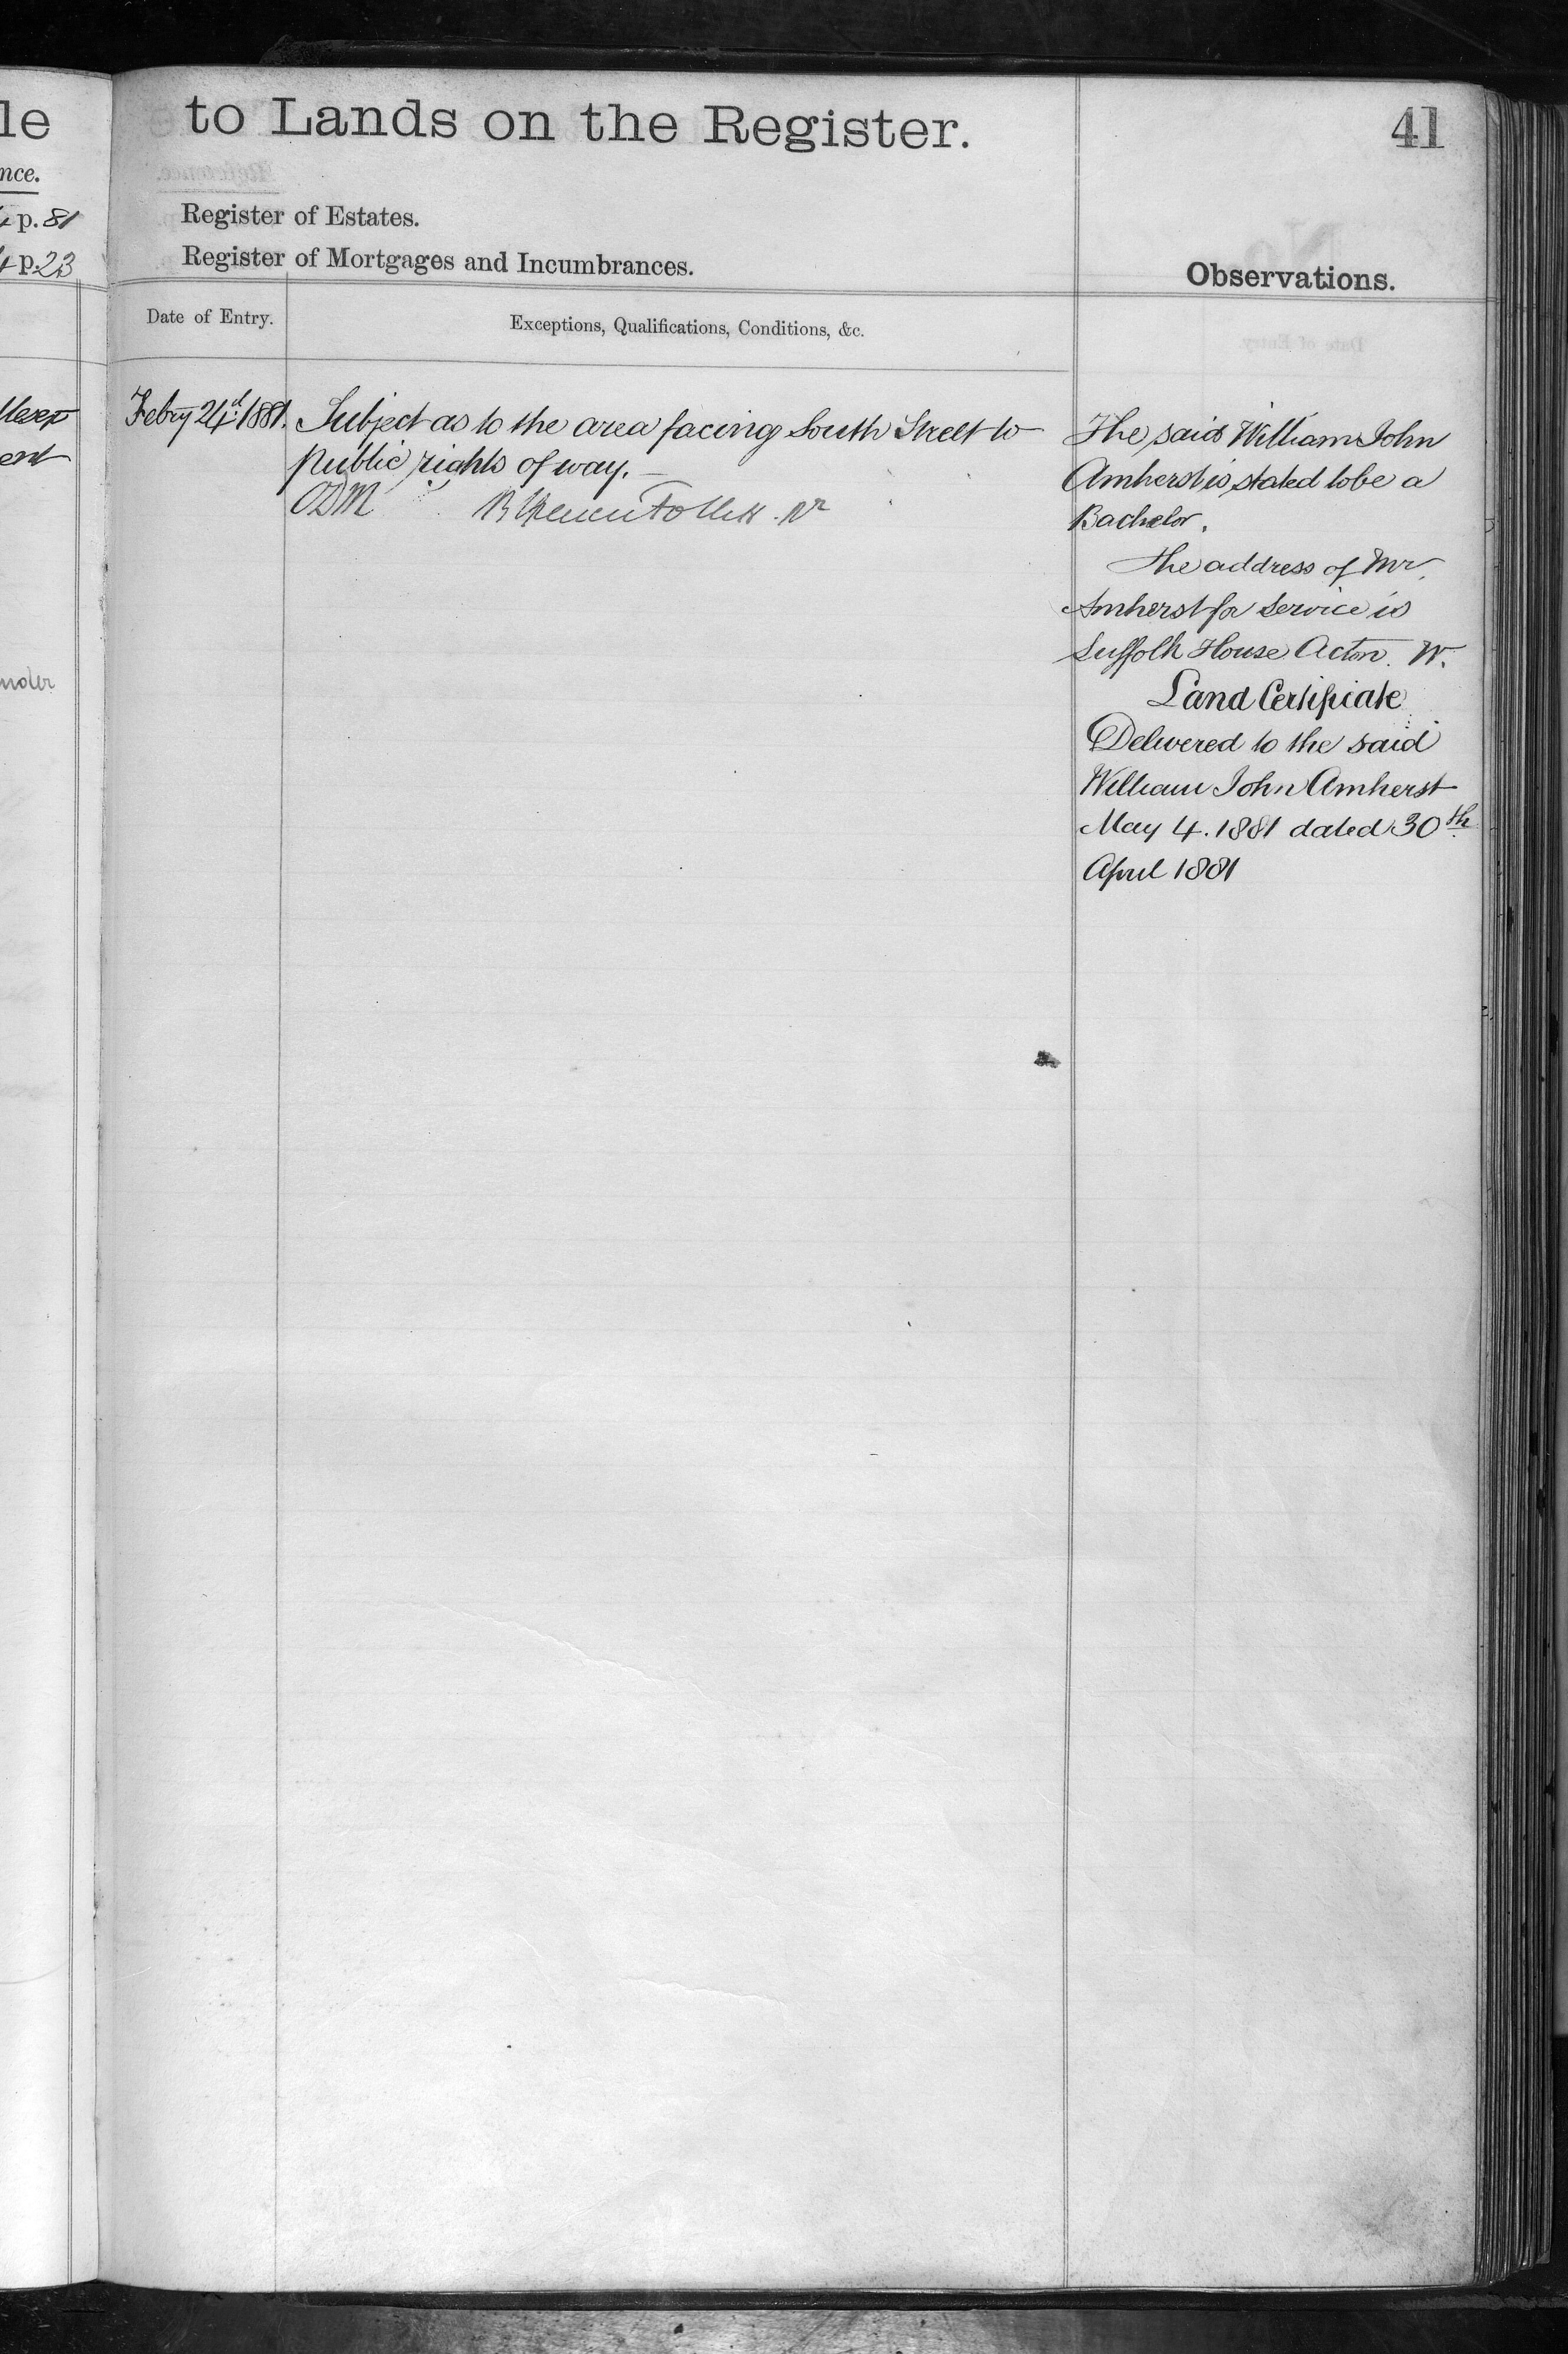 le
nce.
p. 81
p. 23
ent
to Lands on the Register.
41
Register of Estates.
Register of Mortgages and Incumbrances.
Observations.
Date of Entry.
Exceptions, Qualifications, Conditions, &c.
Subject as to the area facing South Street to
public rights of way.
The said William John
Amherst is stated to be a
Bachelor.
The address of Mr.
Amherst for Service is
Suffolk House Acton. W.
Land Certificate
Delivered to the said
William John Amherst
May 4. 1881 dated 30th
April 1881